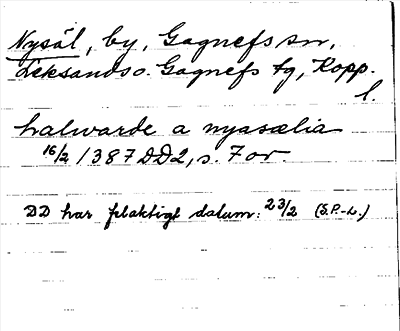 Nysäl, by, Gagnefs sn,
Leksands o. Gagnefs tg, Kopp.
l.
halwarde a nyasælia
16/2 1387 DD2, s. For.
DD har felaktigt datum: 23/2 (S.P.-L.)